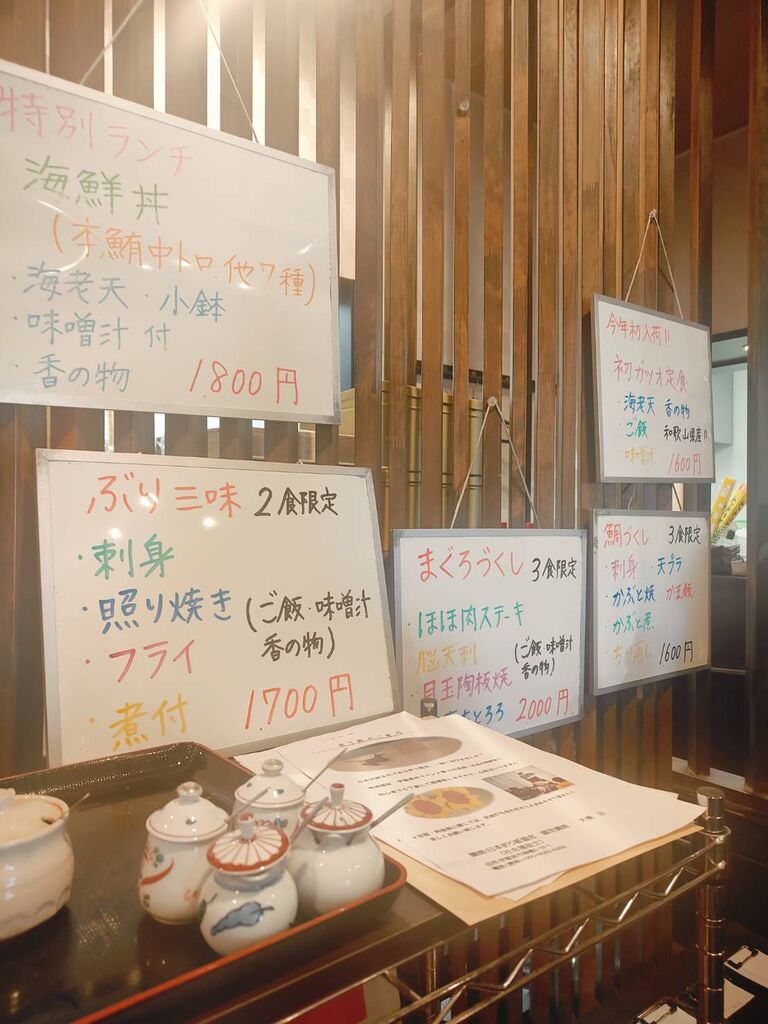 特別ランチ
海鮮丼
(本鮪中トロ.他7種)
・海老天 ・小鉢
・味噌汁 付
・香の物 1.800円
ぶり三味 2食限定
・刺身
・照り焼き (ご飯・味噌汁
香の物)
・フライ
・煮付 1700円
まぐろづくし 3食限定
・ほほ肉ステーキ
脳天刺 (ご飯・味噌汁
香の物)
目玉陶板焼
とろろ 2000円
今年初入荷!!
初カツオ定食
・海老天 香の物
・ご飯 和歌山県産!!
・味噌汁 1600円
鯛づくし 3食限定
・刺身 ・天プラ
・かぶと焼 かま飯
・かぶと煮
・ちり蒸し 1600円